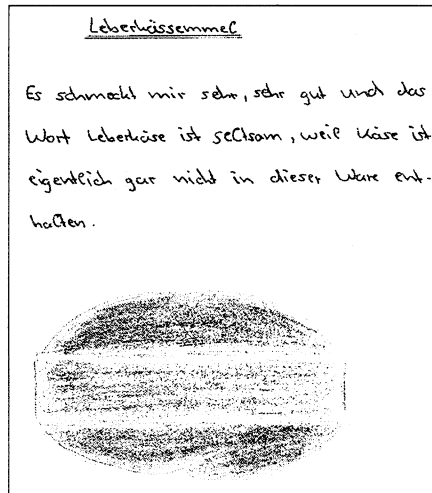 Leberkässemmel
Es schmeckt mir sehr, sehr gut und das
Wort Leberkäse ist seltsam, weil Käse ist
eigentlich gar nicht in dieser Ware ent-
halten.